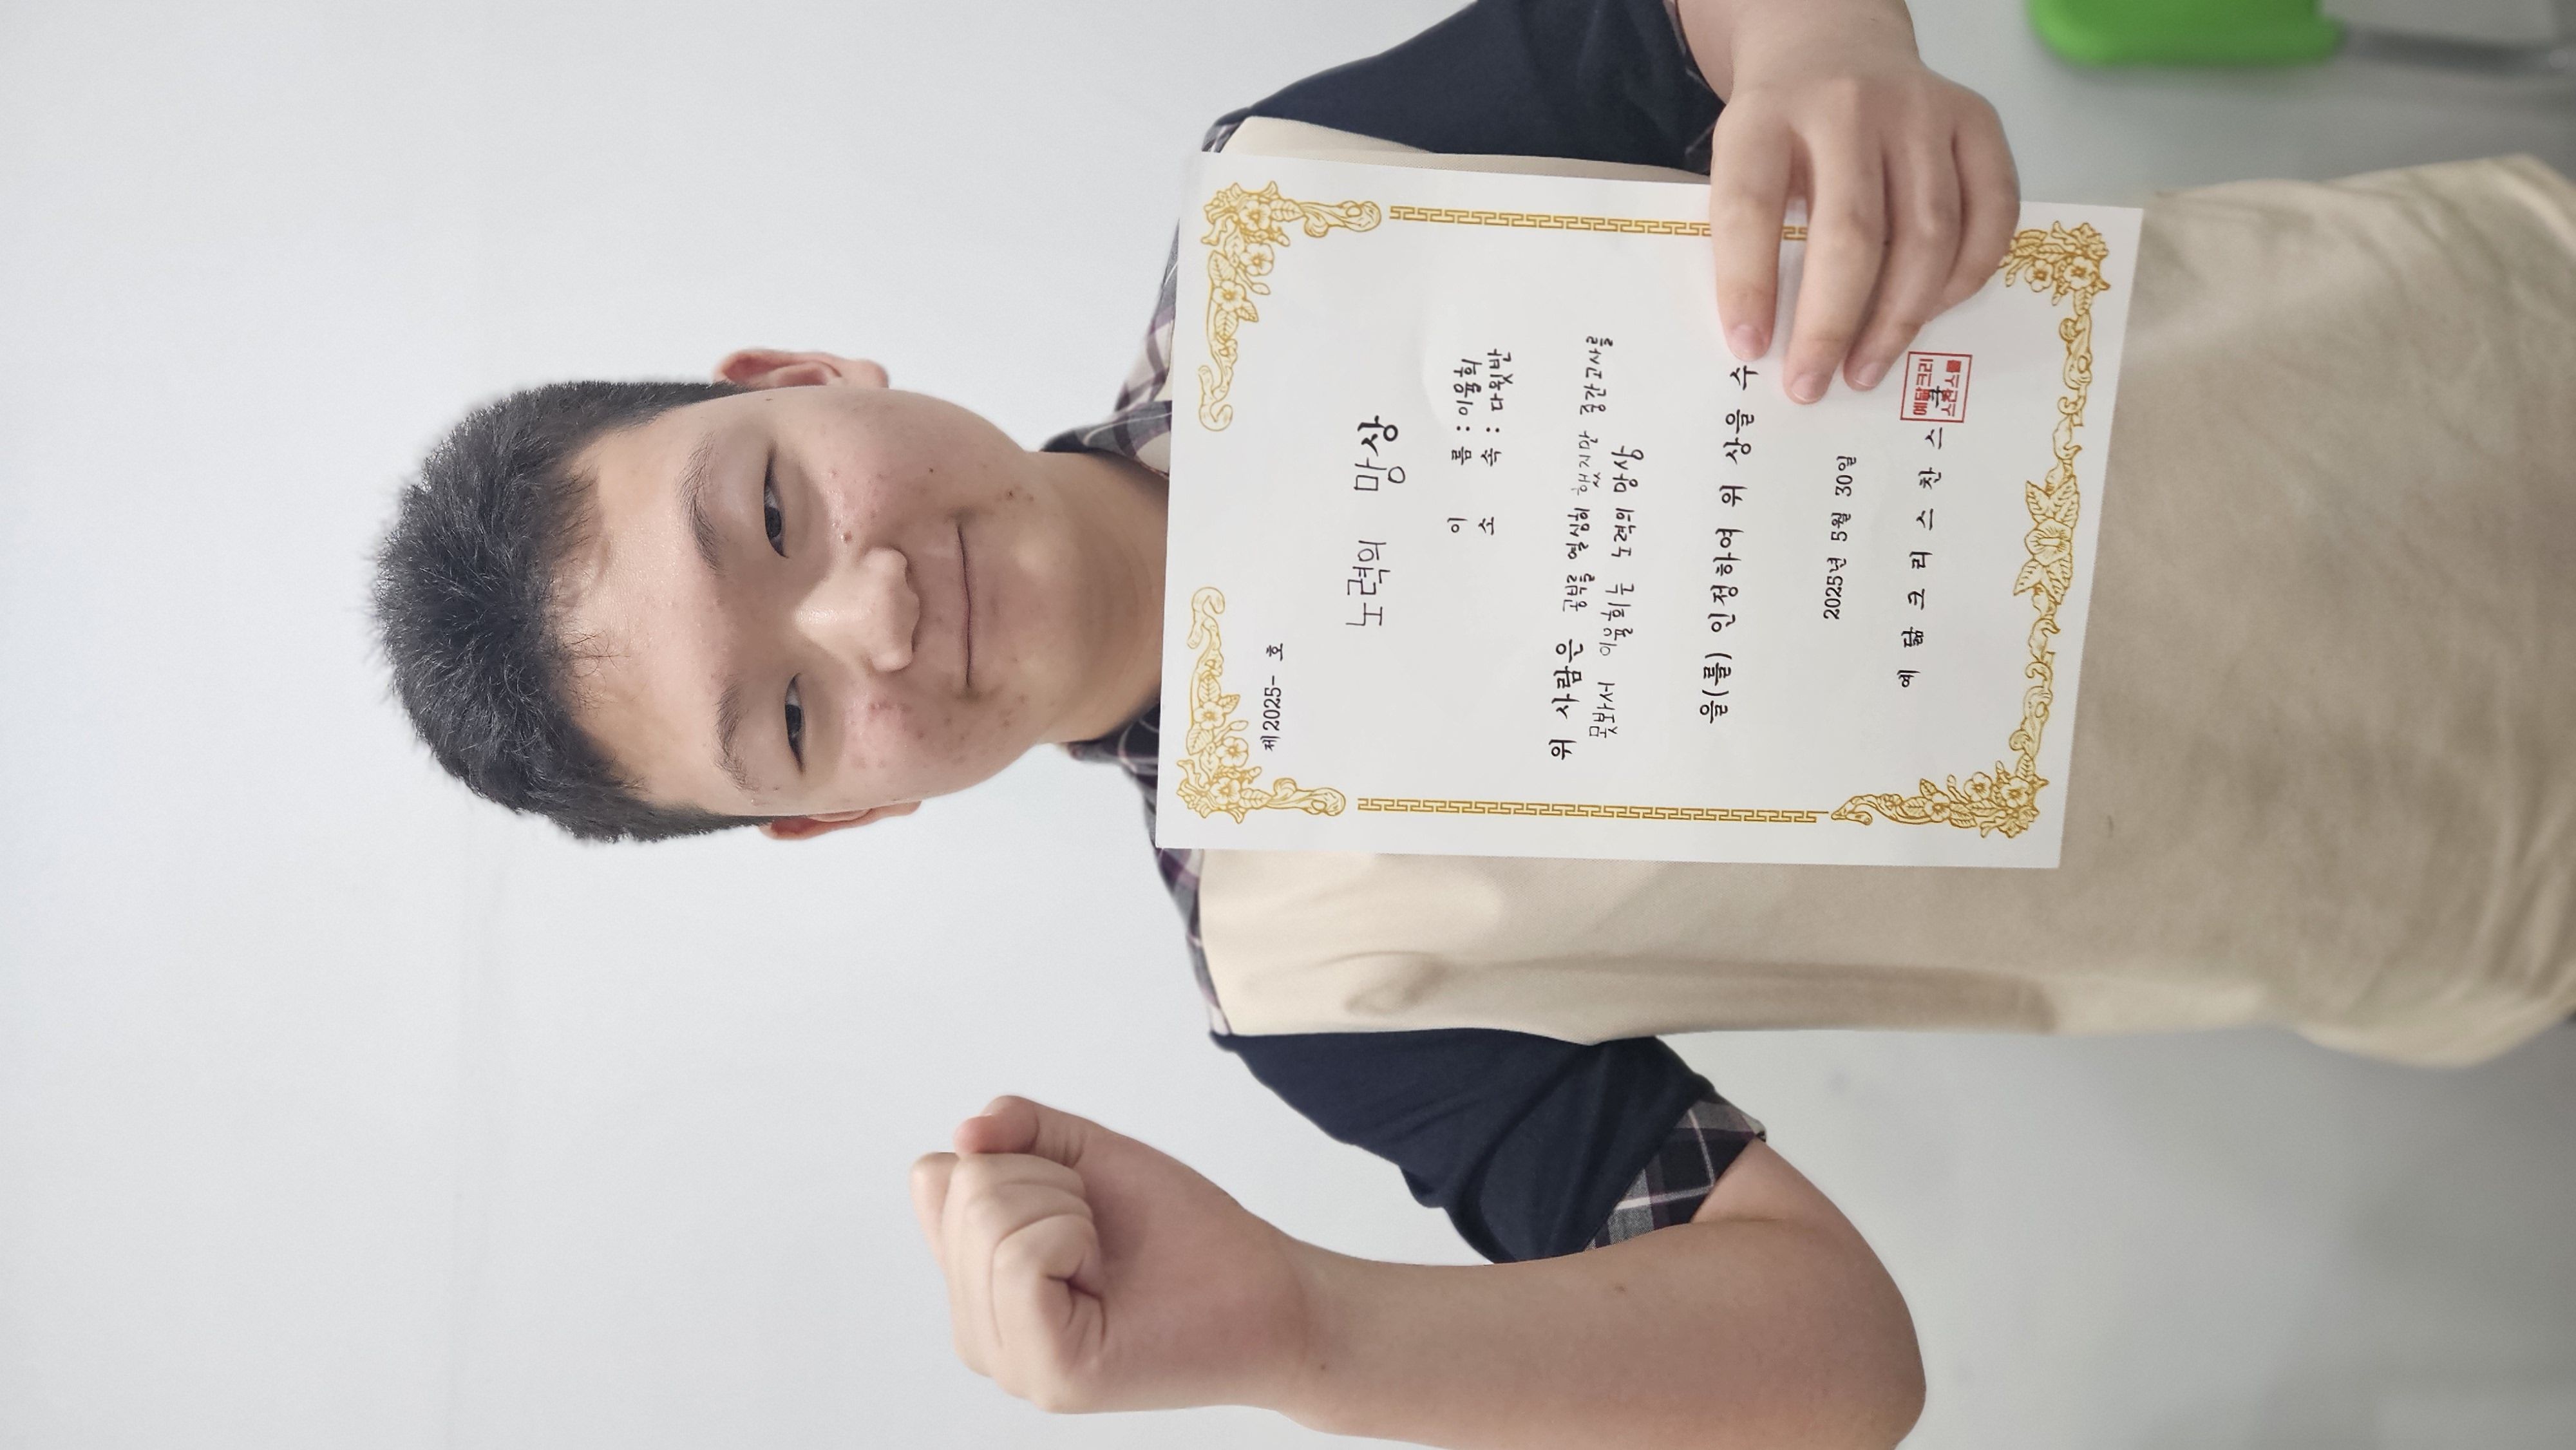 제 2025- 호
노력의 망상
이 름 : 이율희
소 속 : 다윗반
위 사람은 공부를 열심히 했지만 중간고사를
못봐서 이율희는 노력의 망상
을(를) 인정하여 위 상을 수
2025년 5월 30일
예 닮 크 리 스 찬 스
예닮크리
스찬스쿨